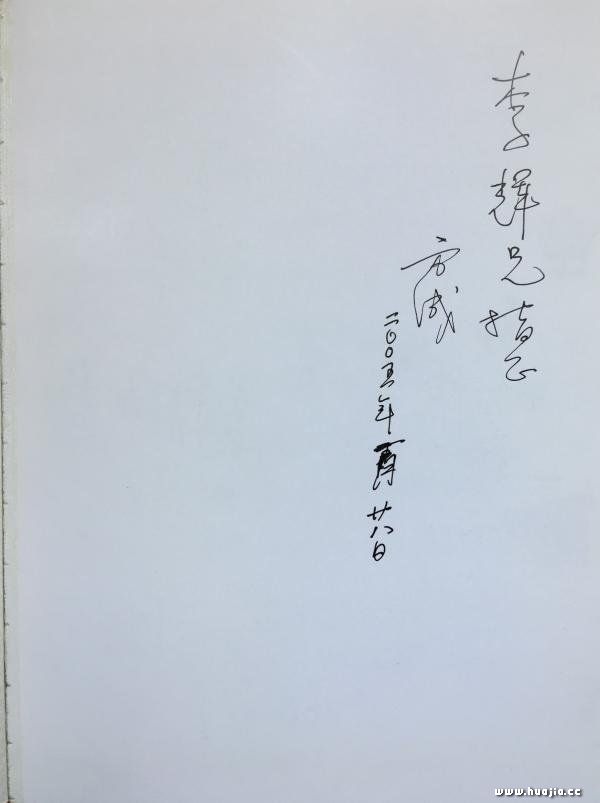 李辉兄指正
方成
二〇〇五年 月廿八日
www.huajia.cc